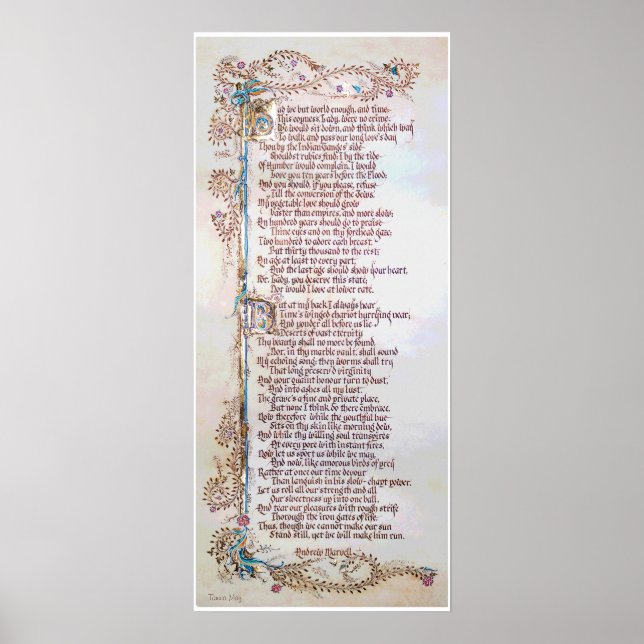 Had we but world enough, and time,
This coyness, Lady, were no crime.
We would sit down, and think which way
To walk and pass our long love's day
Thou by the Indian Ganges' side
Shouldst rubies find; I by the tide
Of Humber would complain. I would
Love you ten years before the Flood;
And you should, if you please, refuse
Till the conversion of the Jews.
My vegetable love should grow
Vaster than empires, and more slow;
An hundred years should go to praise
Thine eyes and on thy forehead gaze;
Two hundred to adore each breast,
But thirty thousand to the rest;
An age at least to every part,
And the last age should show your heart,
For, Lady, you deserve this state;
Nor would I love at lower rate.
But at my back I always hear
Time's winged chariot hurrying near;
And yonder all before us lie
Deserts of vast eternity
Thy beauty shall no more be found,
Nor, in thy marble vault, shall sound
My echoing song; then worms shall try
That long preserv'd virginity
And your quaint honour turn to dust,
And into ashes all my lust.
The grave's a fine and private place,
But none I think do there embrace.
Now therefore while the youthful hue
Sits on thy skin like morning dew,
And while thy willing soul transpires
At every pore with instant fires,
Now let us sport us while we may,
And now, like amorous birds of prey
Rather at once our time devour
Than languish in his slow-chapt power.
Let us roll all our strength and all
Our sweetness up into one ball,
And tear our pleasures with rough strife
Thorough the iron gates of life.
Thus, though we cannot make our sun
Stand still, yet we will make him run.
Andrew Marvell